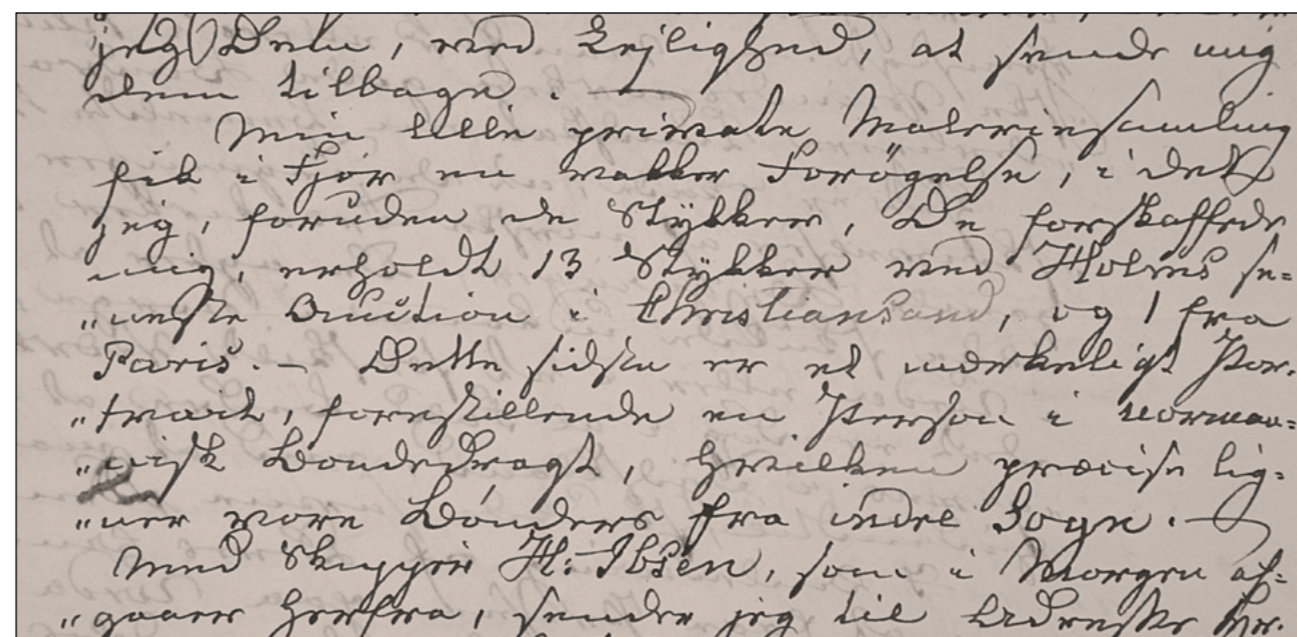 jeg Dem, ved Lejlighed, at sende mig
dem tilbage. —
Min lille private Maleriesamling
fik i Fjor en vakker Forögelse, i det
jeg, foruden de Stykker, De forskaffede
mig, erholdt 13 Stykker ved Holms se=
„neste Auction i Christiansand, og 1 fra
Paris. — Dette sidste er et mærkeligt Por=
„træt, forestillende en Person i norman=
„nisk Bondedragt, hvilken præcise lig=
„ner vore Bönders fra indre Sogn. —
Med Skipper H: Ibsen, som i Morgen af=
„gaaer herfra, sender jeg til Adresse Hr.